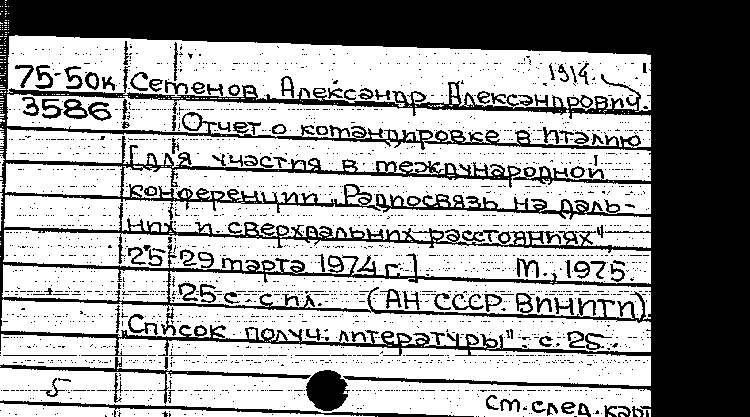 1914.
75-50к Семенов, Александр Александрович.
3586 Отчет о командировке в Италию
[для участия в международной
конференции „Радиосвязь на даль-
них и сверхдальних расстояниях",
25-29 марта 1974 г.]. М., 1975.
25 с. с ил. (АН СССР. ВИНИТИ).
„Список получ. литературы": с. 25.
5
См. след. карт